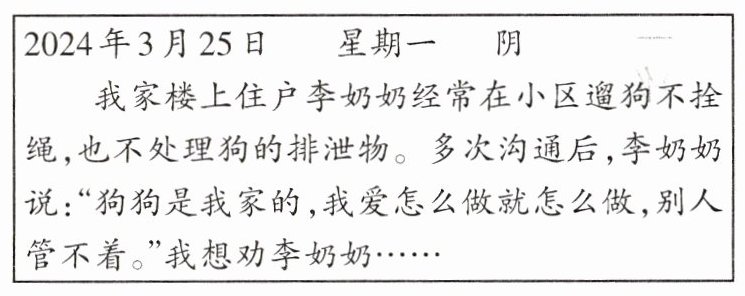 2024年3月25日 星期一 阴
我家楼上住户李奶奶经常在小区遛狗不拴
绳,也不处理狗的排泄物。多次沟通后,李奶奶
说:“狗狗是我家的,我爱怎么做就怎么做,别人
管不着。”我想劝李奶奶……